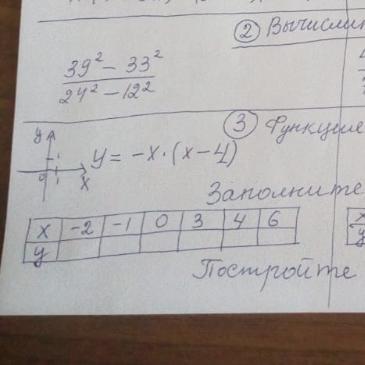 ② Вычислит
39² - 33²
24² - 12²
③ Функция
y
0
x
y = -x·(x-4)
Заполните
x -2 -1 0 3 4 6
y
x
y
Постройте